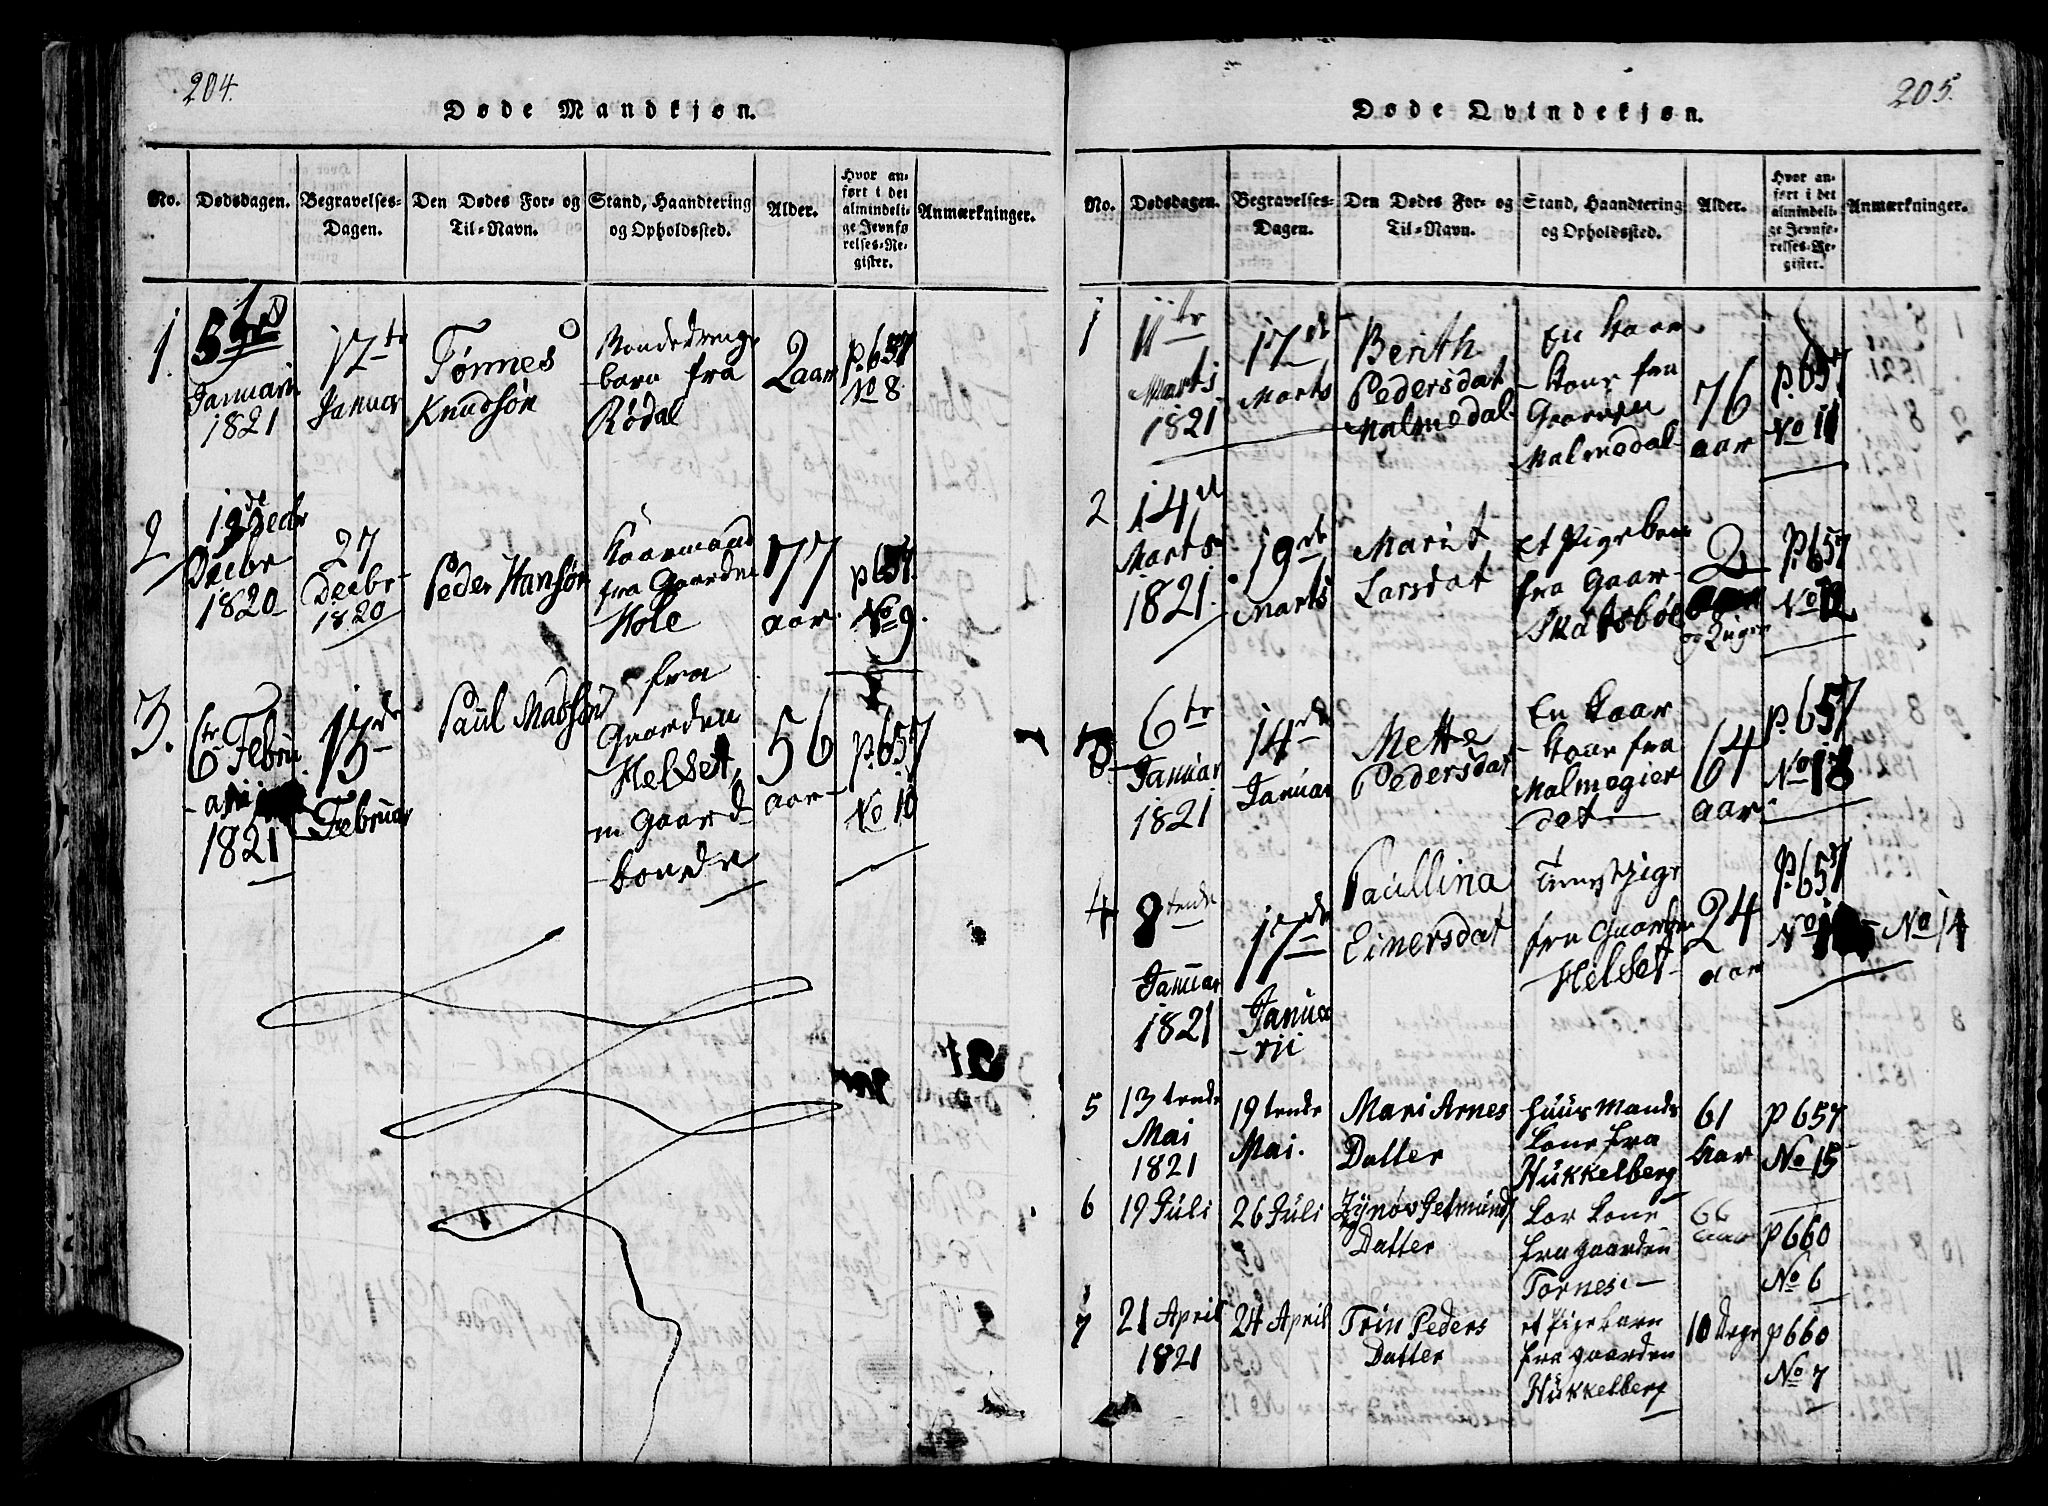 204.
Døde Mandkjøn.
No.
Dødsdagen.
Begravelses-
Dagen.
Den Dødes For- og
Til-Navn.
Stand, Haandtering
og Opholdssted.
Alder.
Hvor an-
ført i det
almindeli-
ge Jevnfø-
relses-Re-
gister.
Anmærkninger.
1.
5te
Januari
1821
17te
Januar
Tønnes
Knudsøn
Bondedrenge
barn fra
Rødal
2 aar
p. 657
No 8.
2
19de
Decbr
1820
27
Decbr
1820
Peder Hansøn
Kaarmand
fra Gaarden
Hole
77
aar.
p 657.
No 9.
3.
6te Febru
-arii
1821
13de
Februar
Paul Madsøn
fra
Gaarden
Helset,
en Gaard
-bonde
56
aar
p. 657
No 10
205.
Døde Qvindekjøn.
No.
Dødsdagen.
Begravelses-
Dagen.
Den Dødes For- og
Til-Navn.
Stand, Haandtering
og Opholdssted.
Alder.
Hvor an-
ført i det
almindeli-
ge Jevnfø-
relses-Re-
gister.
Anmærkninger.
1
11te
Marts
1821
17de
Marts
Berith
Pedersdat
Malmedal
En Kaar
-kone fra
Gaarden
Malmedal
76
aar
p. 657
No 11
2
14de
Marts
1821.
19de
Marts
Marit
Larsdat
Et Pigebarn
fra Gaar-
Skatsbøe
2
p. 657
No 12
3
6te
Januar
1821
14de
Januar
Mette
Pedersdat
En Kaar
-kone fra
Malmegier
det
64
aar
p. 657
No 13
4
8tende
Januar
1821
17de
Janua
-rii
Paullina
Einersdat
Tienestpige
fra Gaarden
Helset
24
aar
p. 657
No 14
5
13 tende
Mai
1821
19 tende
Mai.
Mari Arnes
Datter
Huus Mands
kone fra
Hukkelberg
61
Aar
p 657
No 15
6
19 Juli
26 Juli
Datter
kor kone
fra gaarden
Tornes
66
aar
p 660
No 6
7
21 April
1821
24 April
Trin Peders
Datter
et Pige barn
fra gaarden
Hukkelberg
10 Dage
p 660
No 7